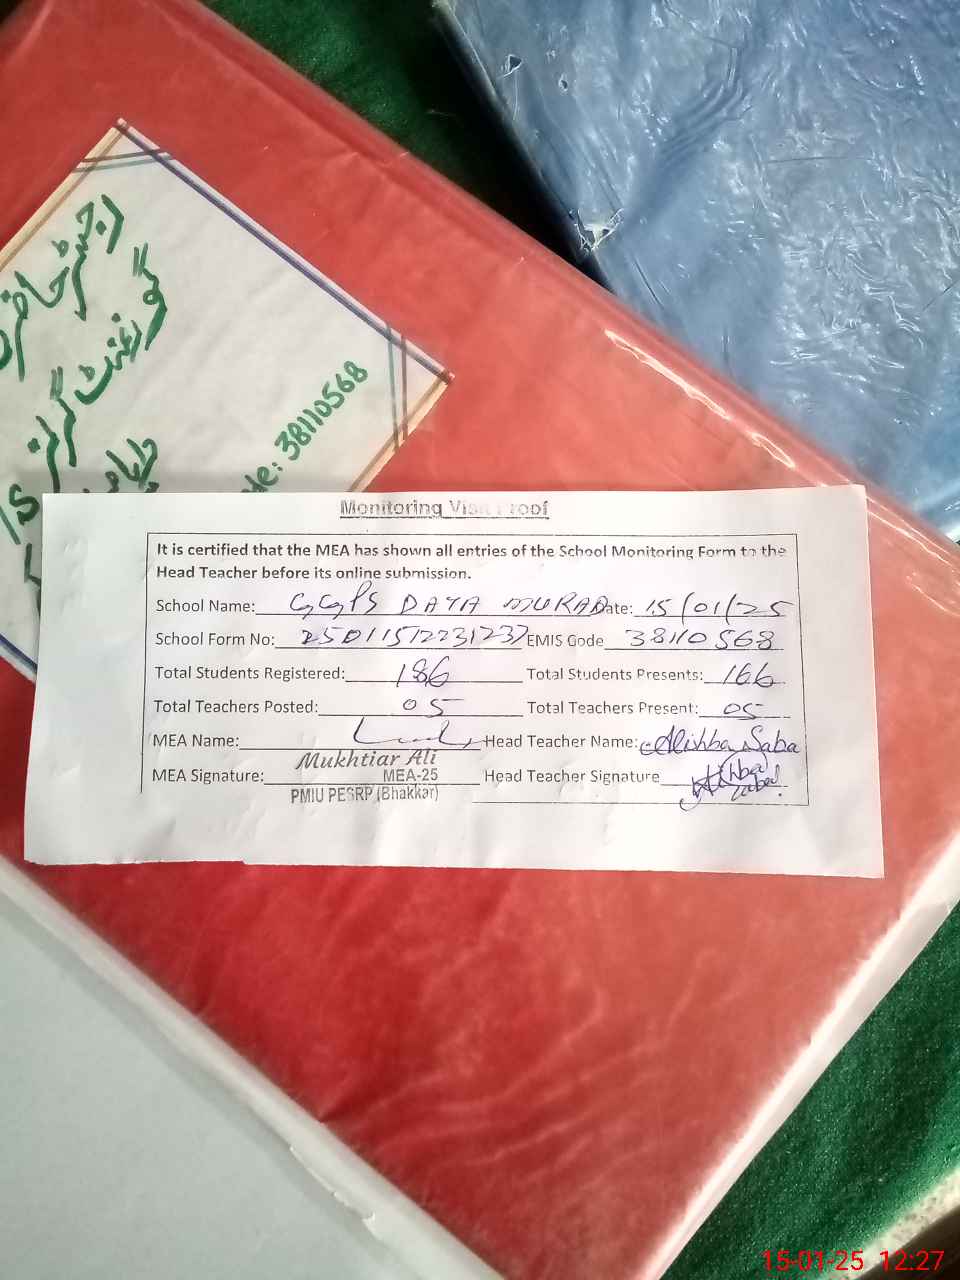 رجسٹر حاضری
گورنمنٹ گرلز
de: 38110568
Monitoring Visit Proof
It is certified that the MEA has shown all entries of the School Monitoring Form to the
Head Teacher before its online submission.
School Name: GGPS DAYA MURAD Date: 15/01/25
School Form No: 25011512231237 EMIS Code 38110568
Total Students Registered: 186 Total Students Presents: 166
Total Teachers Posted: 05 Total Teachers Present: 05
MEA Name: Head Teacher Name: Alishba Saba
Mukhtiar Ali
MEA Signature: MEA-25 Head Teacher Signature Alishba Saba
PMIU PESRP (Bhakkar)
15-01-25 12:27